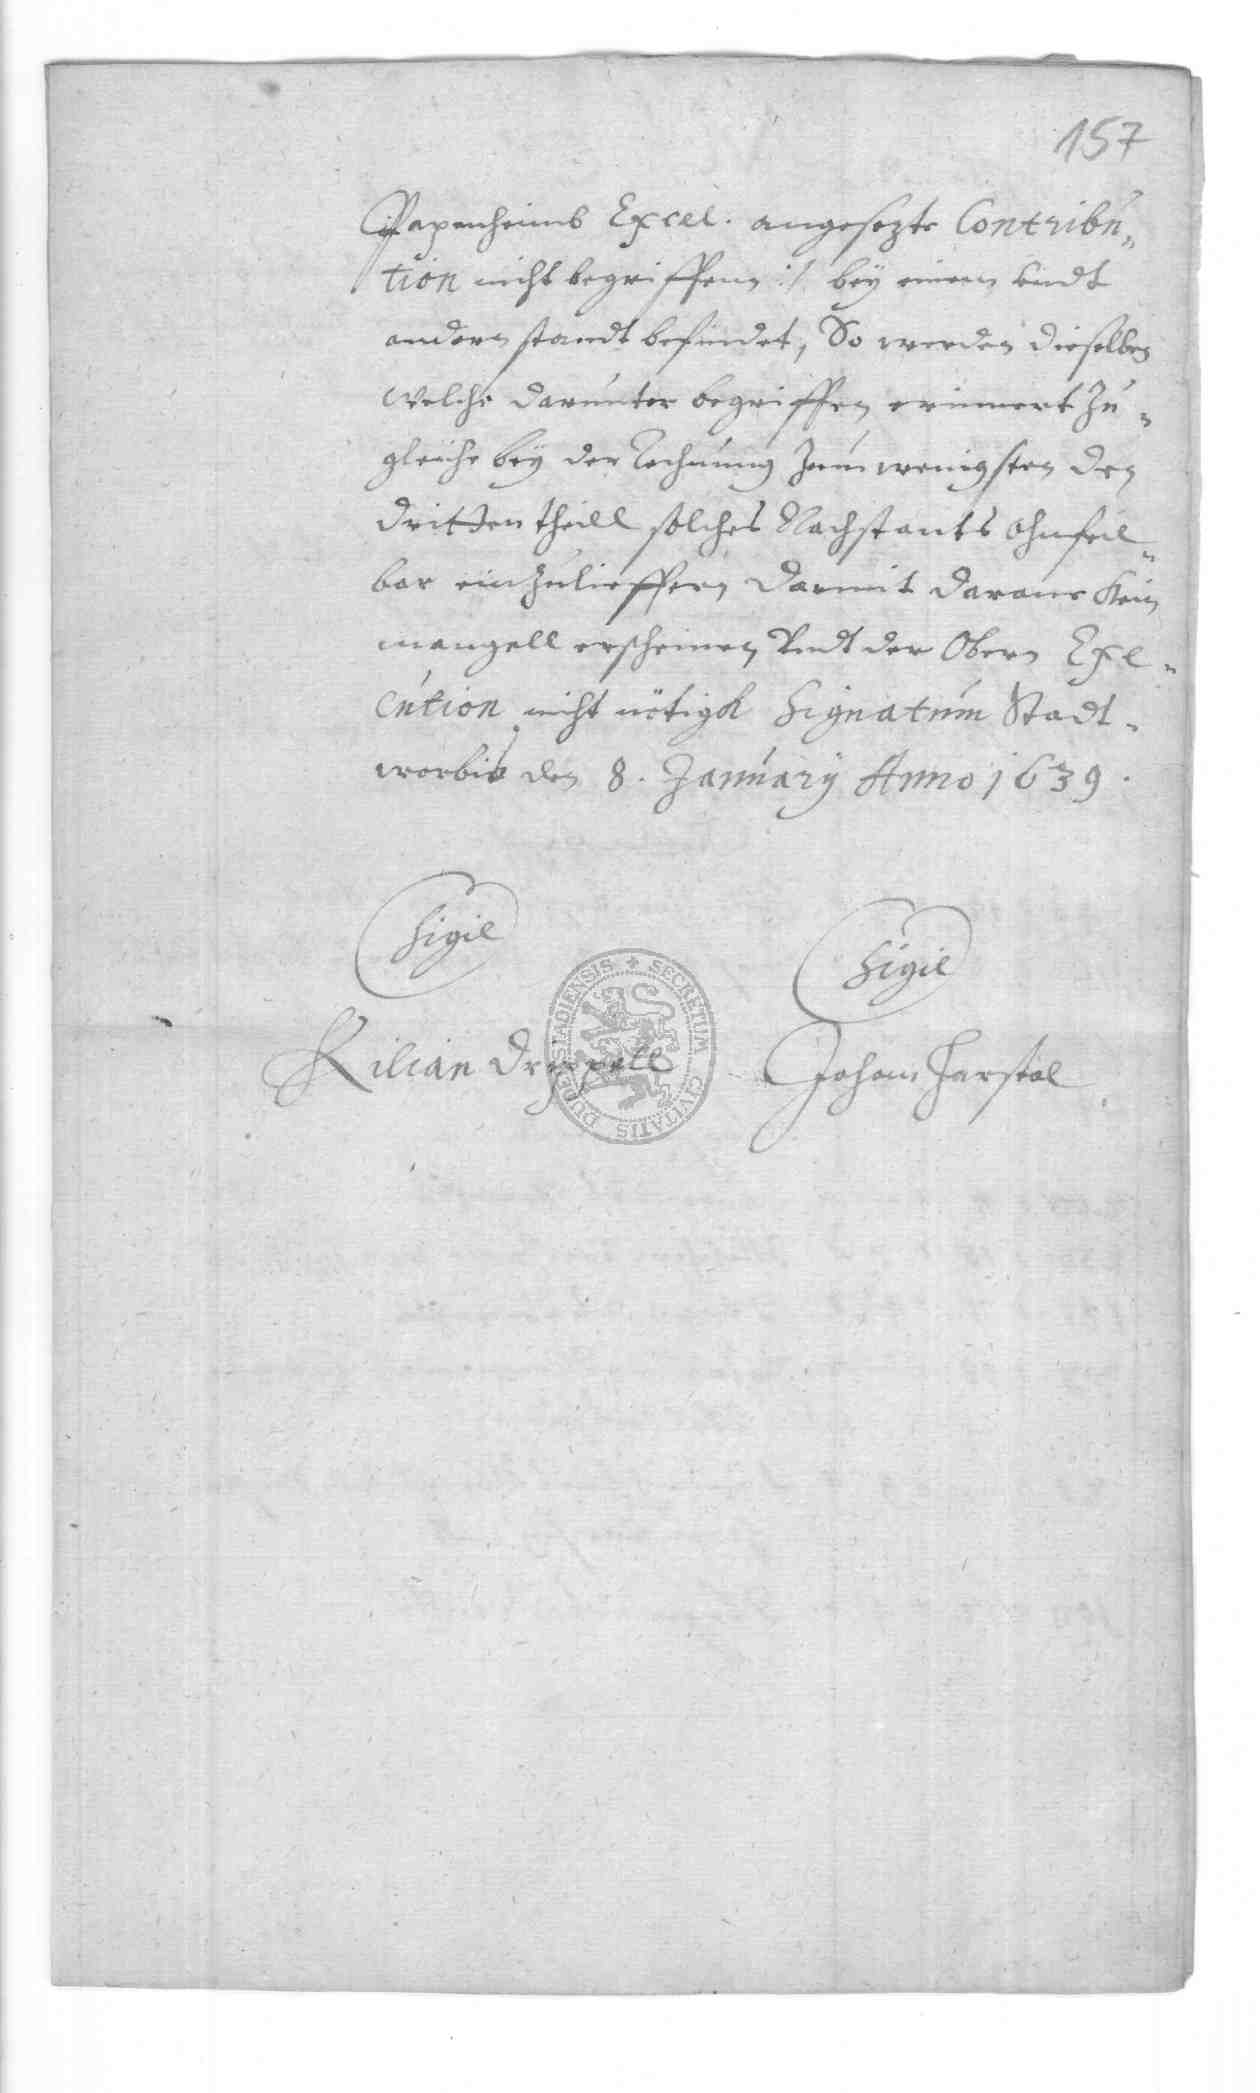 157
Papenheimb Excel. angesezte Contribu„
tion nicht begriffen :/ bey einem undt
andern standt befindet, So werden dieselben
welche darunter begriffen erinnert zu„
gleiche bey der Rechnung zum wenigsten den
dritten theill solches Nachstants ohnfeil„
bar einzulieffern darmit daran kein
mangell erscheinen Undt der Obern Exe„
cution nicht nötigk Signatum Stadt„
worbis den 8. January Anno 1639.
Sigil
Sigil
Kilian Johan Harstal
SECRETUM CIVITATIS DUDERSTADIENSIS